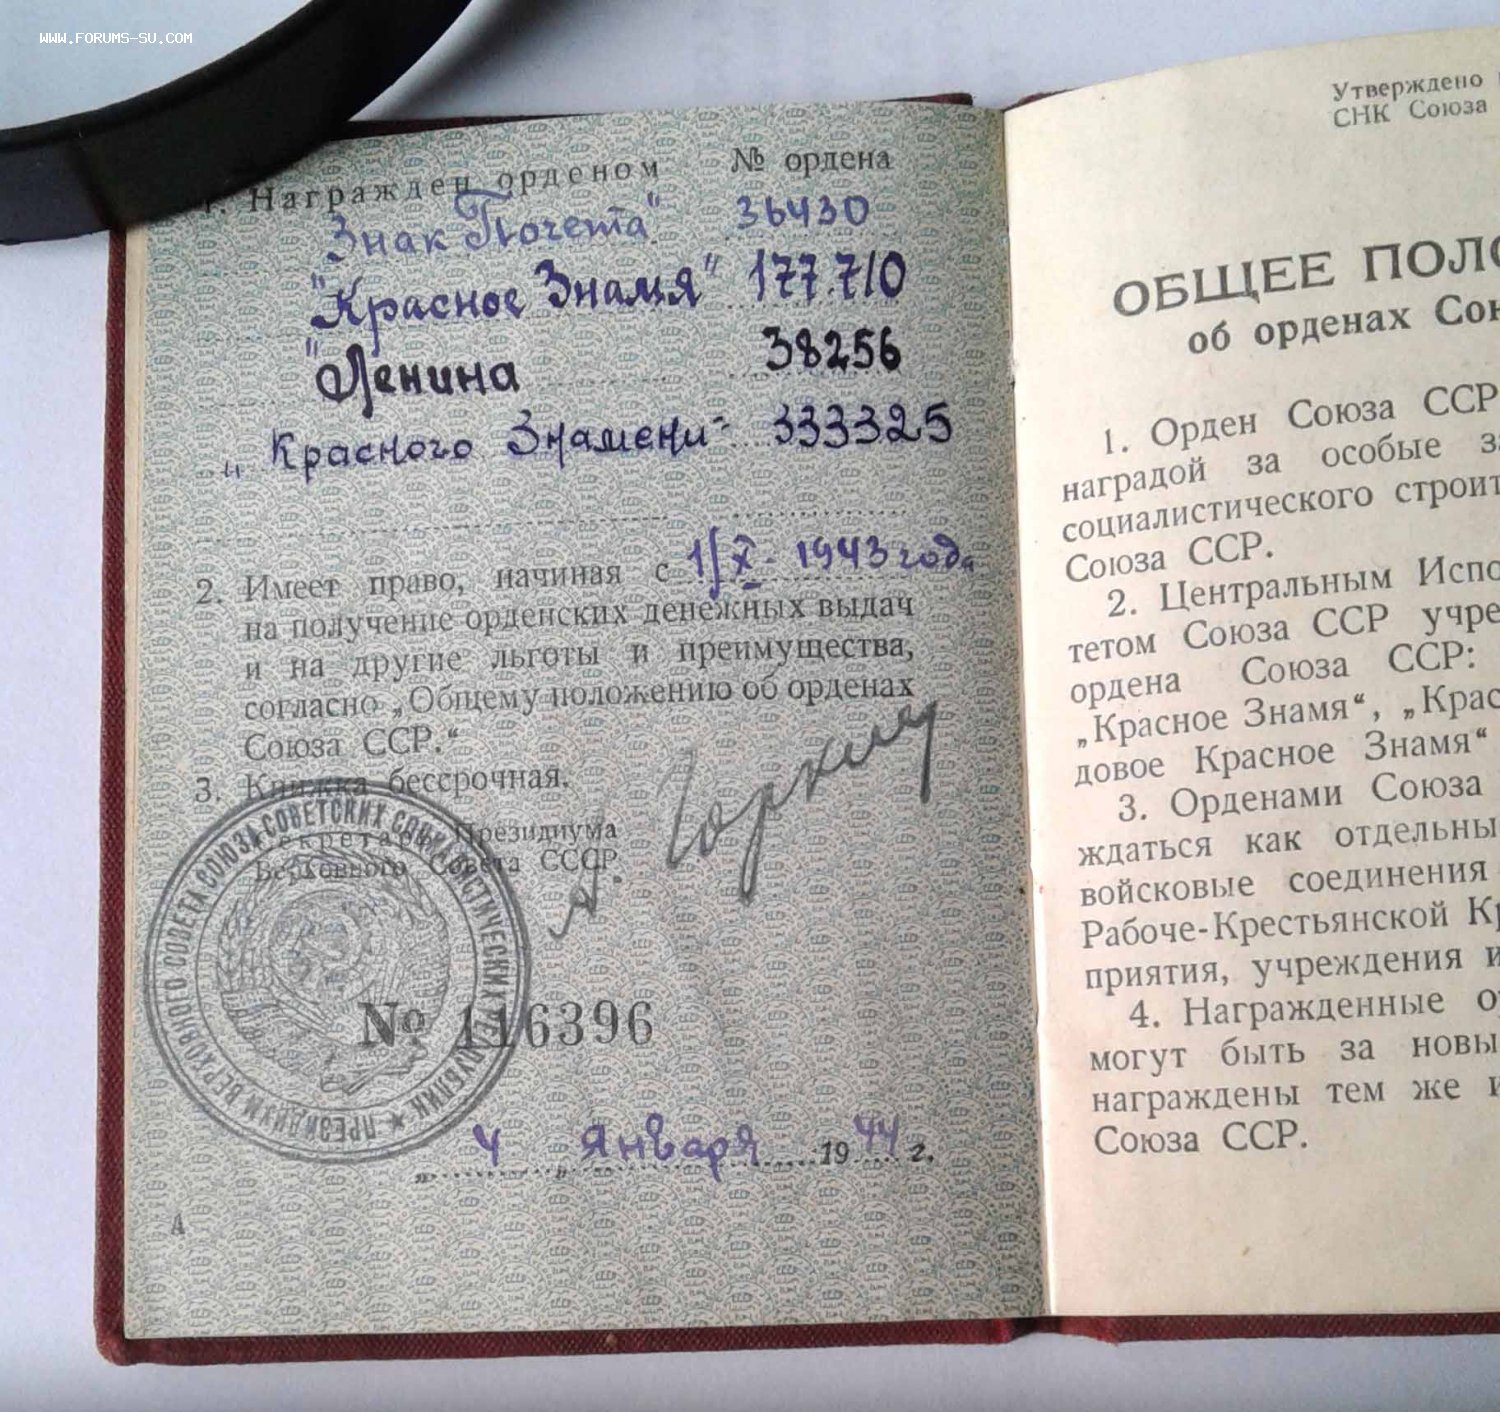 WWW.FORUMS-SU.COM
1. Награжден орденом № ордена
Знак Почета" 36430
"Красное Знамя" 177.710
"Ленина 38256
„ Красного Знамени" 333325
2. Имеет право, начиная с 1/X- 1943 года
на получение орденских денежных выдач
и на другие льготы и преимущества,
согласно „Общему положению об орденах
Союза ССР."
3. Книжка бессрочная.
Секретарь Президиума
Верховного Совета СССР.
А. Горкин
ПРЕЗИДИУМ ВЕРХОВНОГО СОВЕТА СОЮЗА СОВЕТСКИХ СОЦИАЛИСТИЧЕСКИХ РЕСПУБЛИК ★
№ 116396
„ 4 „ Января 1944 г.
А
Утверждено
СНК Союза
ОБЩЕЕ ПОЛО
об орденах Сою
1. Орден Союза ССР
наградой за особые за
социалистического строит
Союза ССР.
2. Центральным Испо
тетом Союза ССР учре
ордена Союза ССР:
„Красное Знамя“, „Крас
довое Красное Знамя“
3. Орденами Союза
ждаться как отдельны
войсковые соединения
Рабоче-Крестьянской Кр
приятия, учреждения и
4. Награжденные о
могут быть за новы
награждены тем же и
Союза ССР.